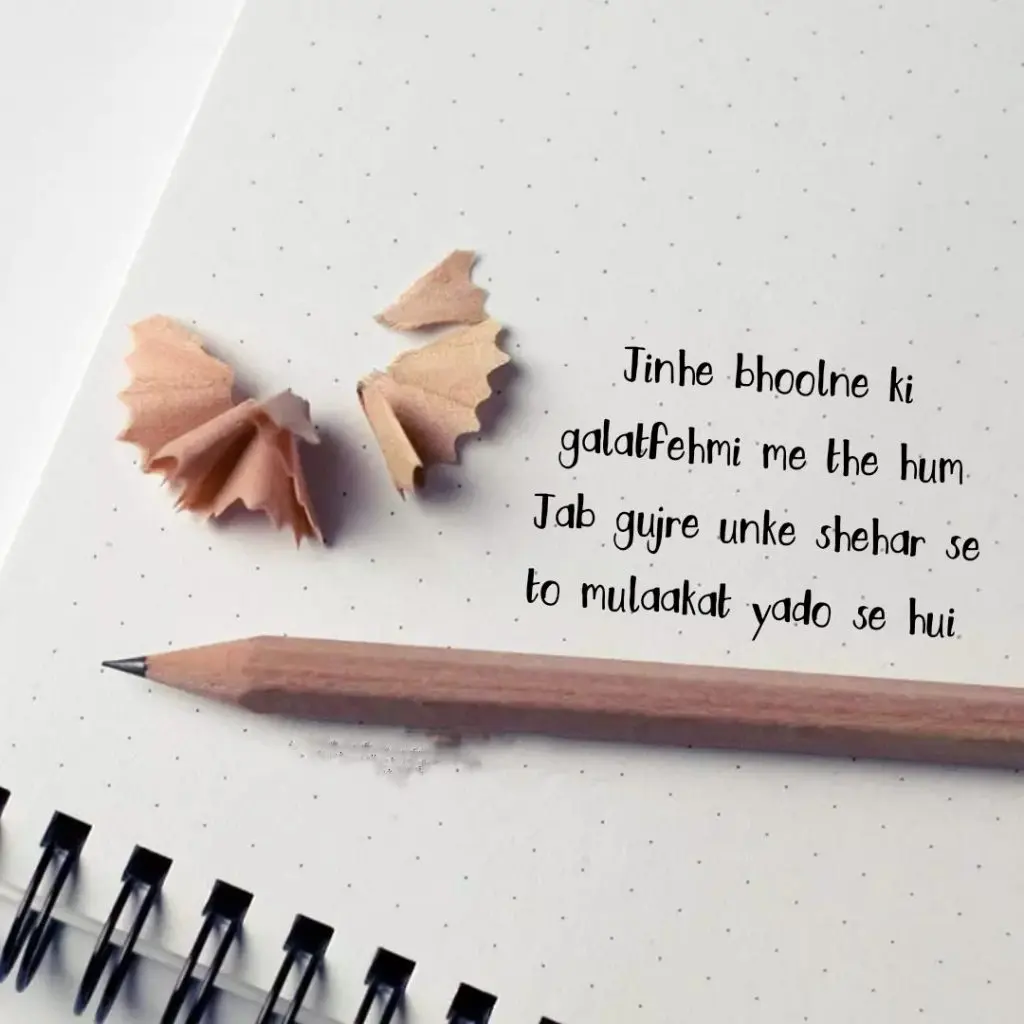 Jinhe bhoolne ki
galatfehmi me the hum
Jab gujre unke shehar se
to mulaakat yado se hui